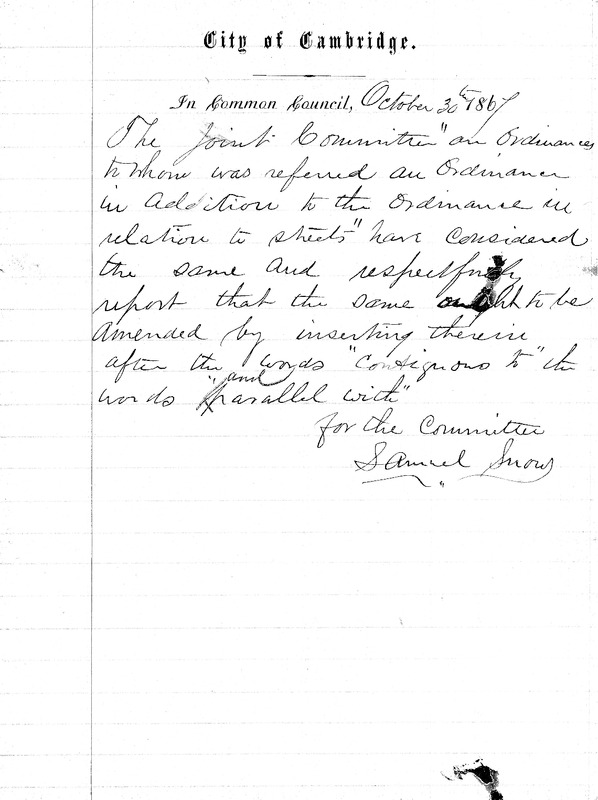 City of Cambridge.
In Common Council, October 30th 1867
The Joint Committee "on Ordinances
to whom was referred an Ordinance
in addition to the Ordinance in
relation to streets" have considered
the same and respectfully
report that the same ought to be
amended by inserting therein
after the words "contiguous to" the
words "and parallel with"
for the Committee
Samuel Snow